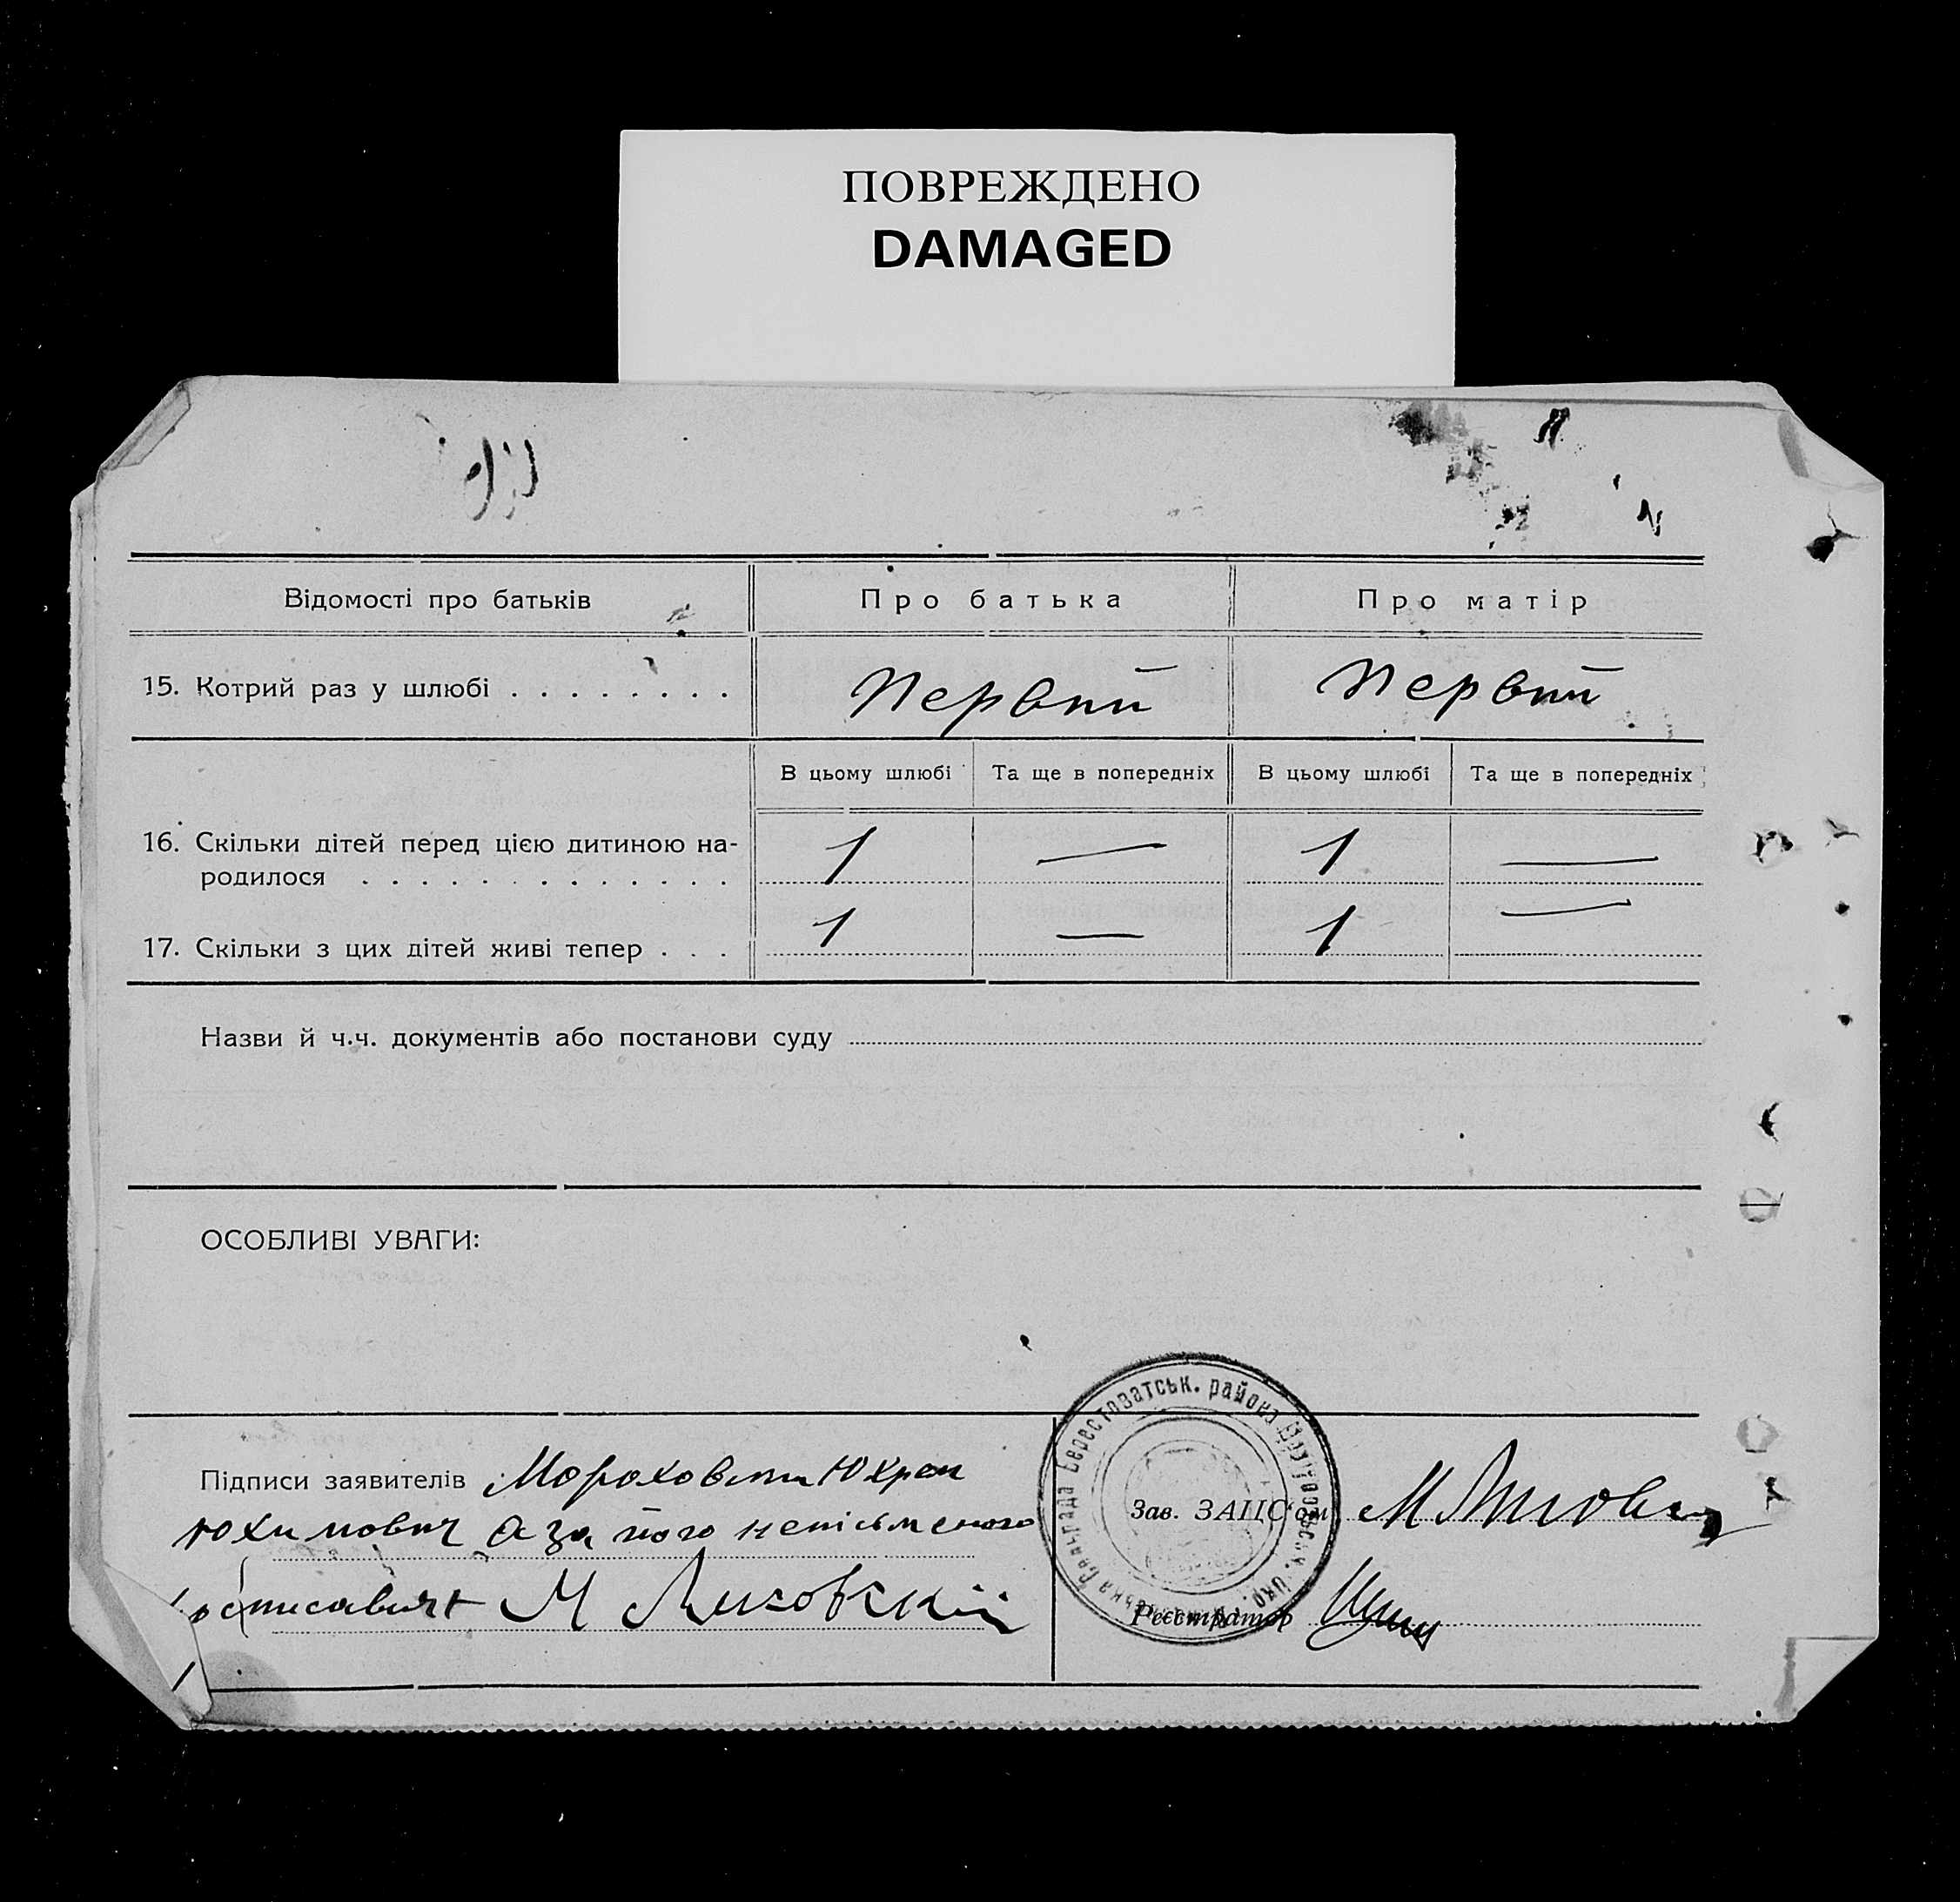 ПОВРЕЖДЕНО
DAMAGED
Відомості про батьків
Про батька
Про матір
15. Котрий раз у шлюбі . . . . . . . .
Первий
Первий
В цьому шлюбі
Та ще в попередніх
В цьому шлюбі
Та ще в попередніх
16. Скільки дітей перед цією дитиною на-
родилося . . . . . . . . . . . . .
1
—
1
—
17. Скільки з цих дітей живі тепер . . .
1
—
1
—
Назви й ч.ч. документів або постанови суду
ОСОБЛИВІ УВАГИ:
Підписи заявителів
Юхимович а за його неписьменого
М Лисовский
Зав. ЗАПС'ом
Реєстратор
Берестоватськ. района